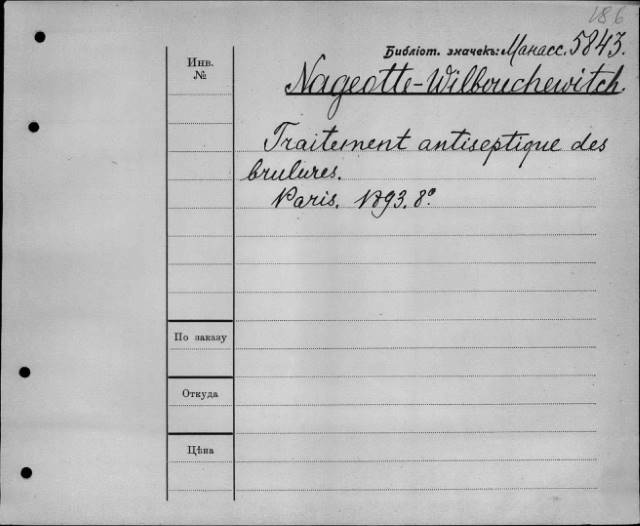 186
Библіот. значекъ: Манасс. 5843.
Инв.
№
Nageotte-Wilbouchewitch.
Traitement antiseptique des
brulures.
Paris. 1893. 8º
По заказу
Откуда
Цѣна